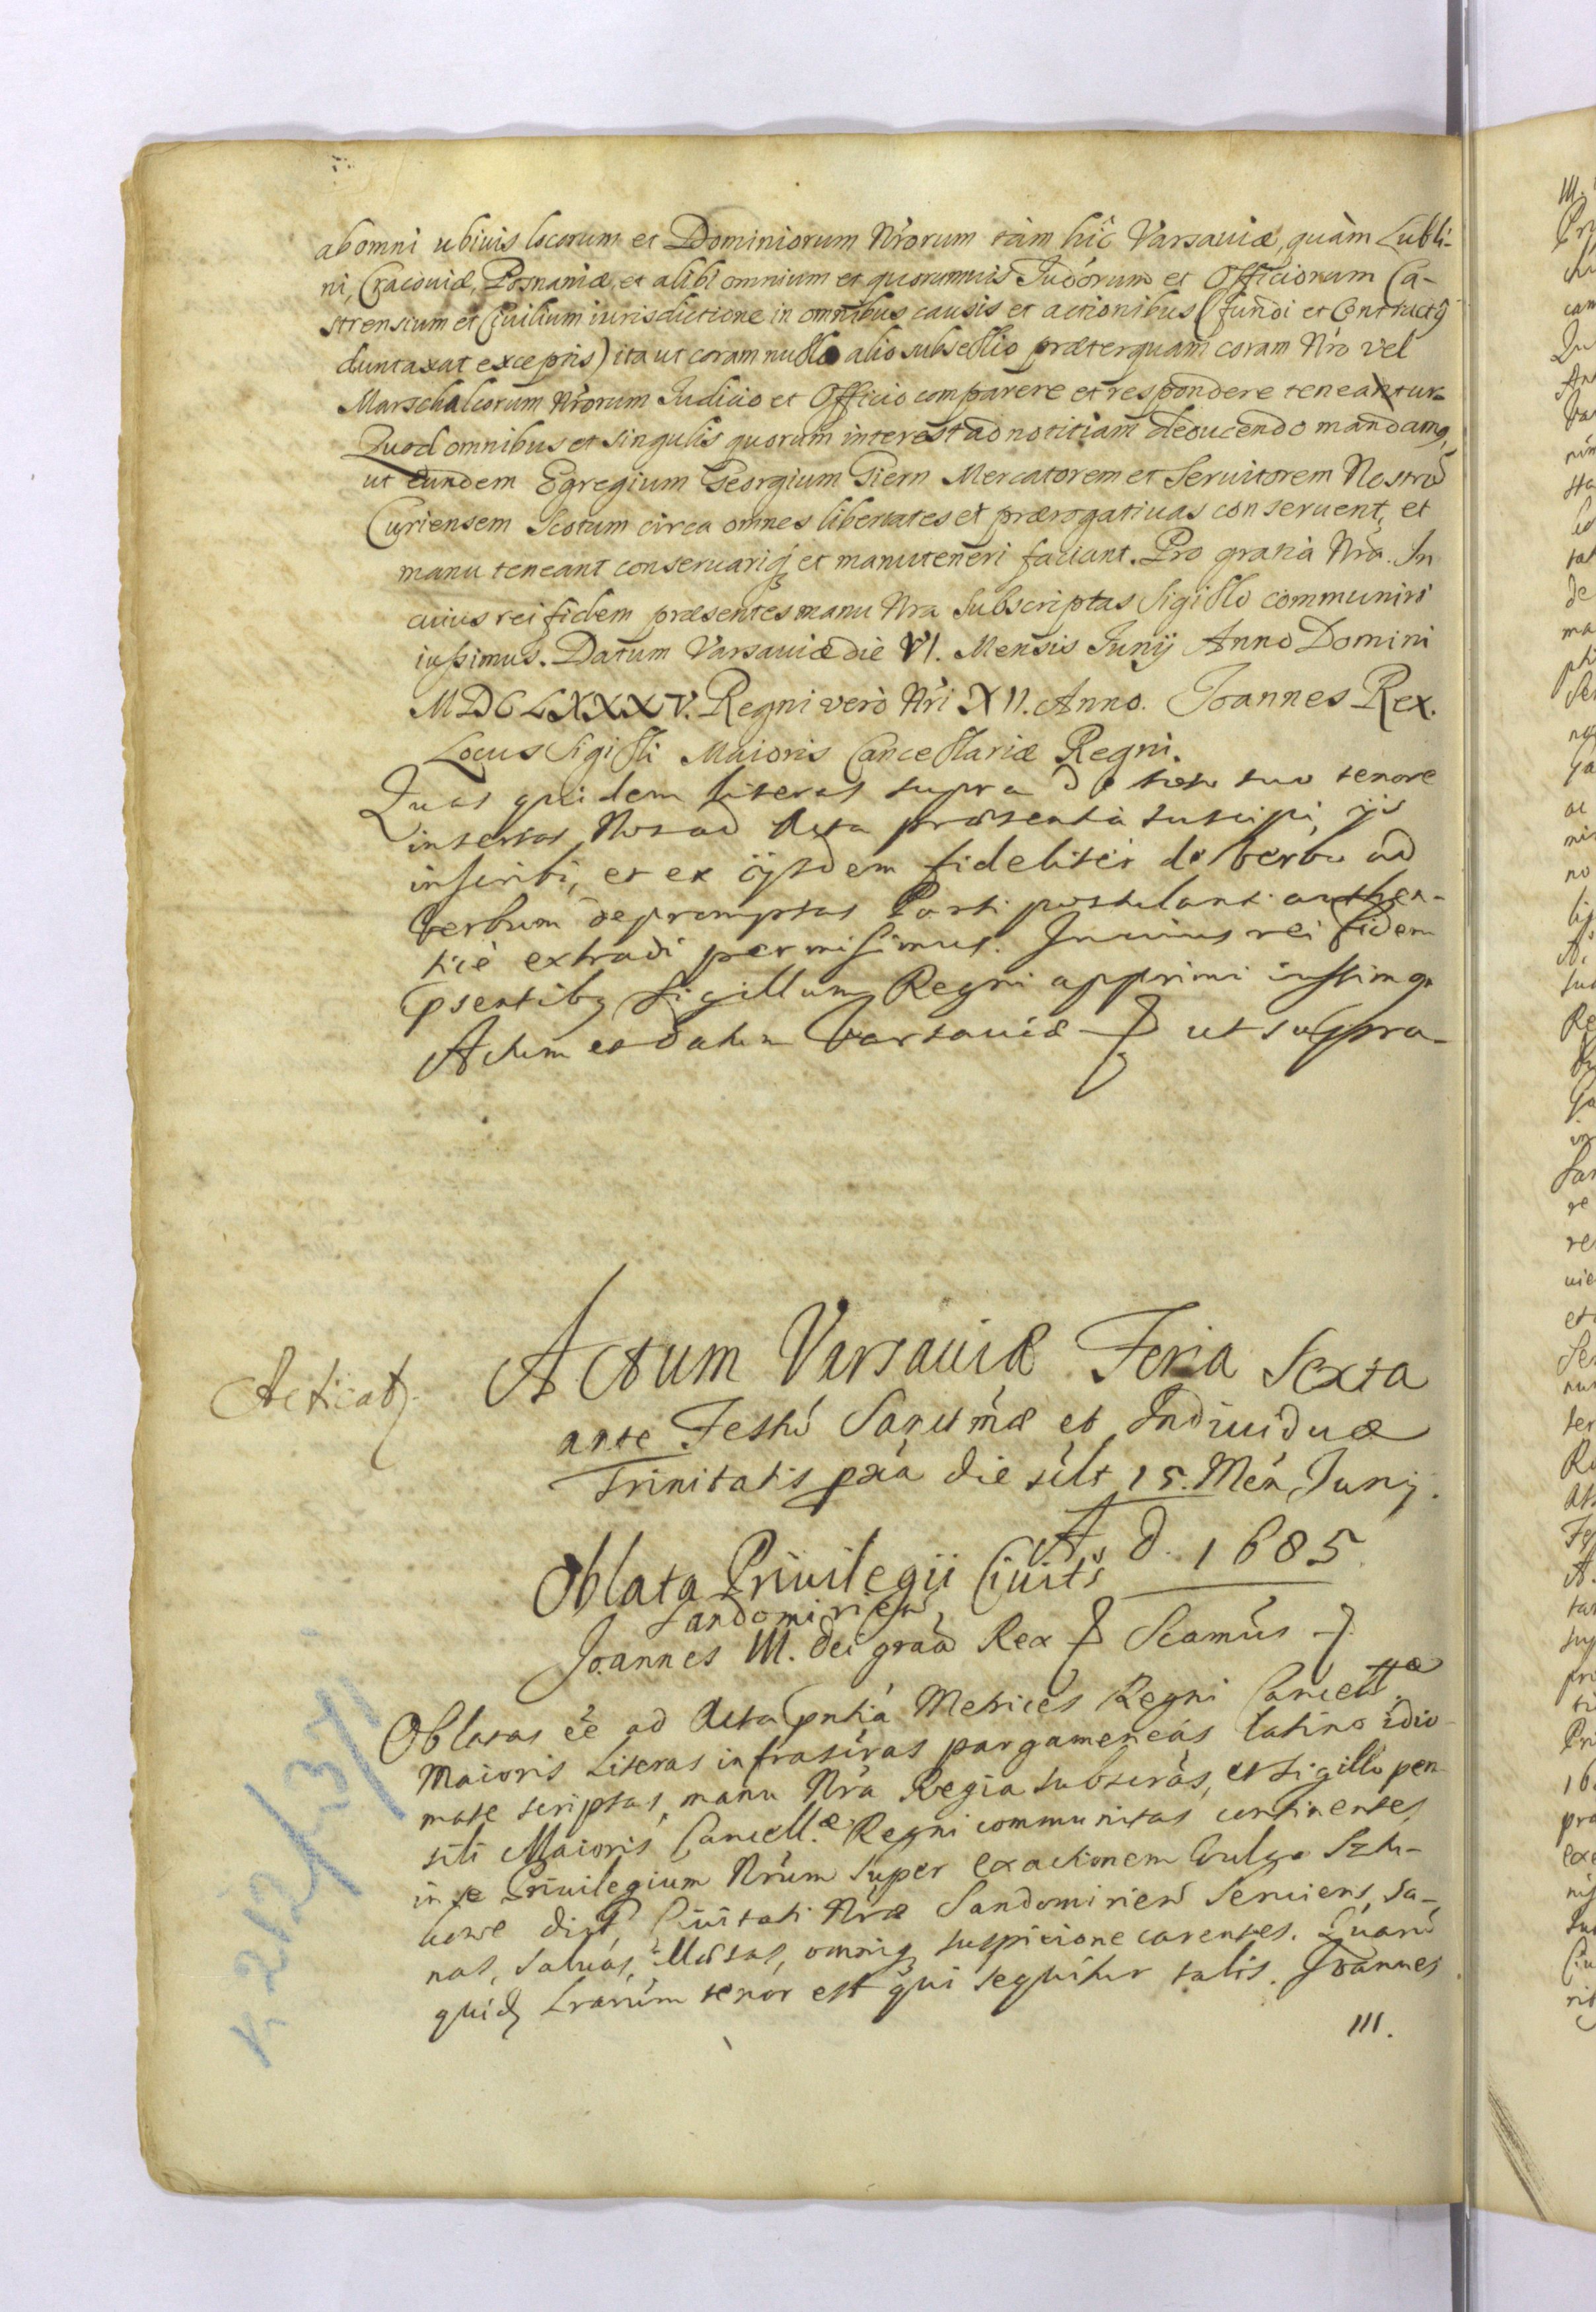 ab omni ubiuis locorum et Dominiorum Nrorum tàm hîc Varsaviæ, quàm Lubli-
ni, Cracoviæ, Posnaniæ, et alibi omnium et quorumuis Judorum et Officiorum Ca-
strensium et Ciuilium iurisdictione in omnibus causis et actionibus (fundi et Contractu
duntaxat exceptis) ita ut coram nullo alio subsellio præterquam coram Nro vel
Marschalcorum Nrorum Judicio et Officio comparere et respondere teneatur.
Quod omnibus et singulis quorum interest ad notitiam deducendo mandamq,
ut eundem Egregium Georgium Giern Mercatorem et Seruitorem Nostrũ
Curiensem Scotum circa omnes libertates et prærogatiuas conseruent, et
manu teneant conseruariq et manuteneri faciant. Pro gratia Nra. In
cuius rei fidem præsentes manu Nra Subscriptas Sigillo communiri
iussimus. Datum Varsaviæ die VI. Mensis Junij Anno Domini
MDCLXXXV. Regni verò Nri XII. Anno. Joannes Rex.
Locus Sigilli Maioris Cancellariæ Regni.
Quas quidem literas supra de toto suo tenore
insertas Nos ad Acta præsentia suscipi, ijs
inscribi, et ex ijsdem fideliter de verbo ad
verbum depromptas Parti postulanti authen-
ticè extradi permisimus. In cuius rei fidem
psentibq Sigillum Regni apprimi iussimq.
Actum et datum Varsaviæ ut supra
Acticat.
Actum Varsaviæ Feria Sexta
ante Festũ Sanctmæ et Indiuiduæ
Trinitatis pxia die scilt 15. Men. Junij.
A. D. 1685
Oblata Priuilegii Ciuits
Sandomirien
Joannes III. Dei graa Rex Scamus
Oblatas ee ad Acta pntia Metrices Regni Cancellæ
Maioris Literas infrascras pargameneas latino idio-
mate scriptas, manu Nra Regia subscras, et sigillo pen-
sili Maioris Cancell.æ Regni communitas continentes
in se Priuilegium Nrum super exactionem vulgo Sztu-
kowe dict. Ciuitati Nræ Sandomirien seruiens, Sa-
nas, Saluas, illæsas, omniq suspicione carentes. Quarũ
quid. Lrarum tenor est qui sequitur talis. Joannes
III.